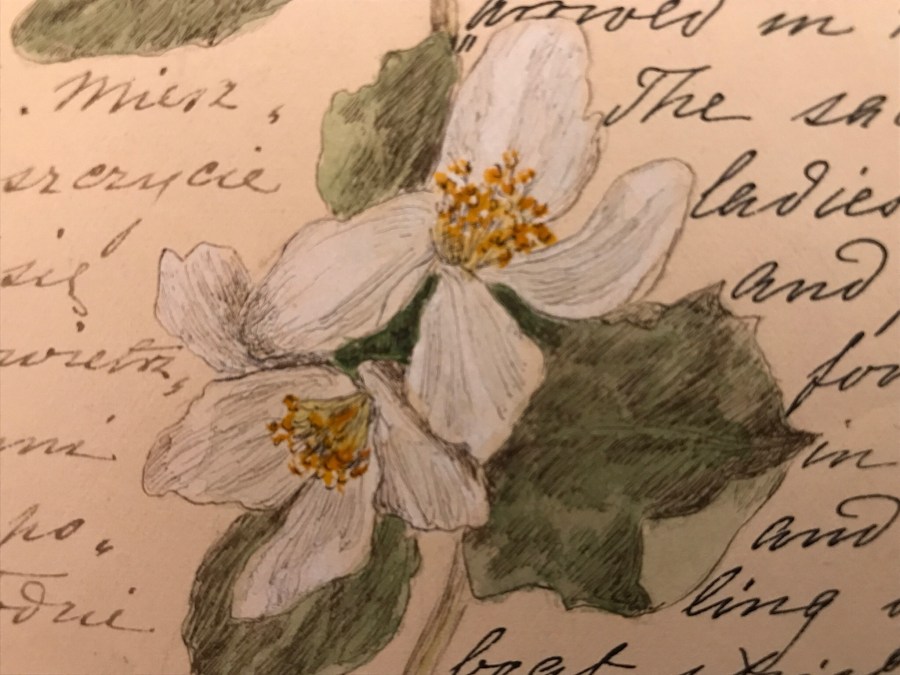 . Mierz„
szczycie
się
wietrz„
ni
po„
dzie
"arrowed in
The sa
ladies
and
for
in
and
ling
boat